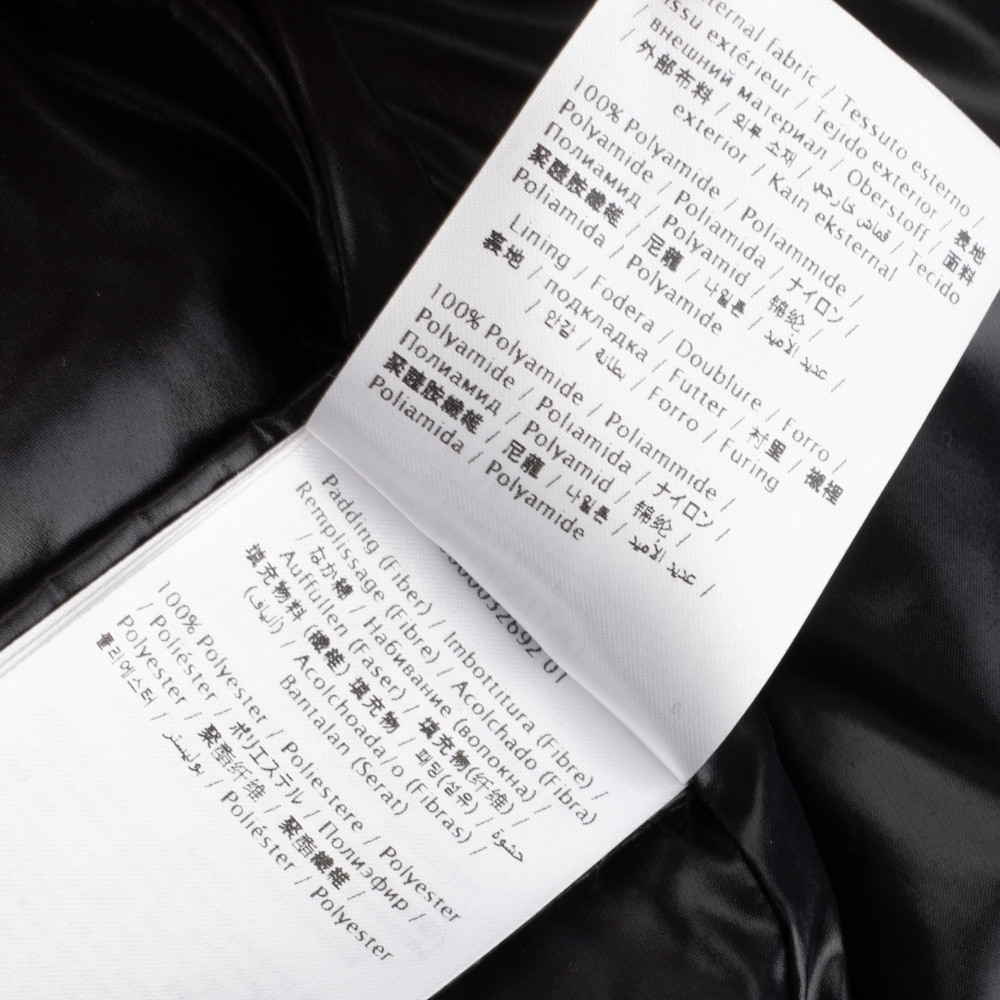 ternal fabric / Tessuto esterno /
issu extérieur / Tejido exterior / 表地
/ внешний материал / Oberstoff / 面料
/ 外部布料 / 외부 소재 / قماش خارجي / Tecido
exterior / Kain eksternal
100% Polyamide / Poliammide /
Polyamide / Poliamida / ナイロン /
Полиамид / Polyamid / 锦纶 /
聚醯胺纖維 / 尼龍 / 나일론 /
Poliamida / Polyamide
Lining / Fodera / Doublure / Forro /
裏地 / подкладка / Futter / 村里 / 襯裡
/ 안감 / بطانة / Forro / Furing
100% Polyamide / Poliammide /
Polyamide / Poliamida / ナイロン /
Полиамид / Polyamid / 锦纶 /
聚醯胺纖維 / 尼龍 / 나일론 /
Poliamida / Polyamide
Padding (Fiber) / Imbottitura (Fibre) /
Remplissage (Fibre) / Acolchado (Fibra)
/ なか綿 / Набивание (волокна) /
Auffüllen (Faser) / 填充物(纤维) /
填充物料 (纖維) 填充物 / 패딩(섬유) / حشوة
(ألياف) / Acolchoada/o (Fibras) /
Bantalan (Serat)
100% Polyester / Poliestere / Polyester
/ Poliéster / ポリエステル / Полиэфир /
Polyester / 聚酯纤维 / 聚酯纖維 /
폴리에스터 / بوليستر / Poliéster / Polyester